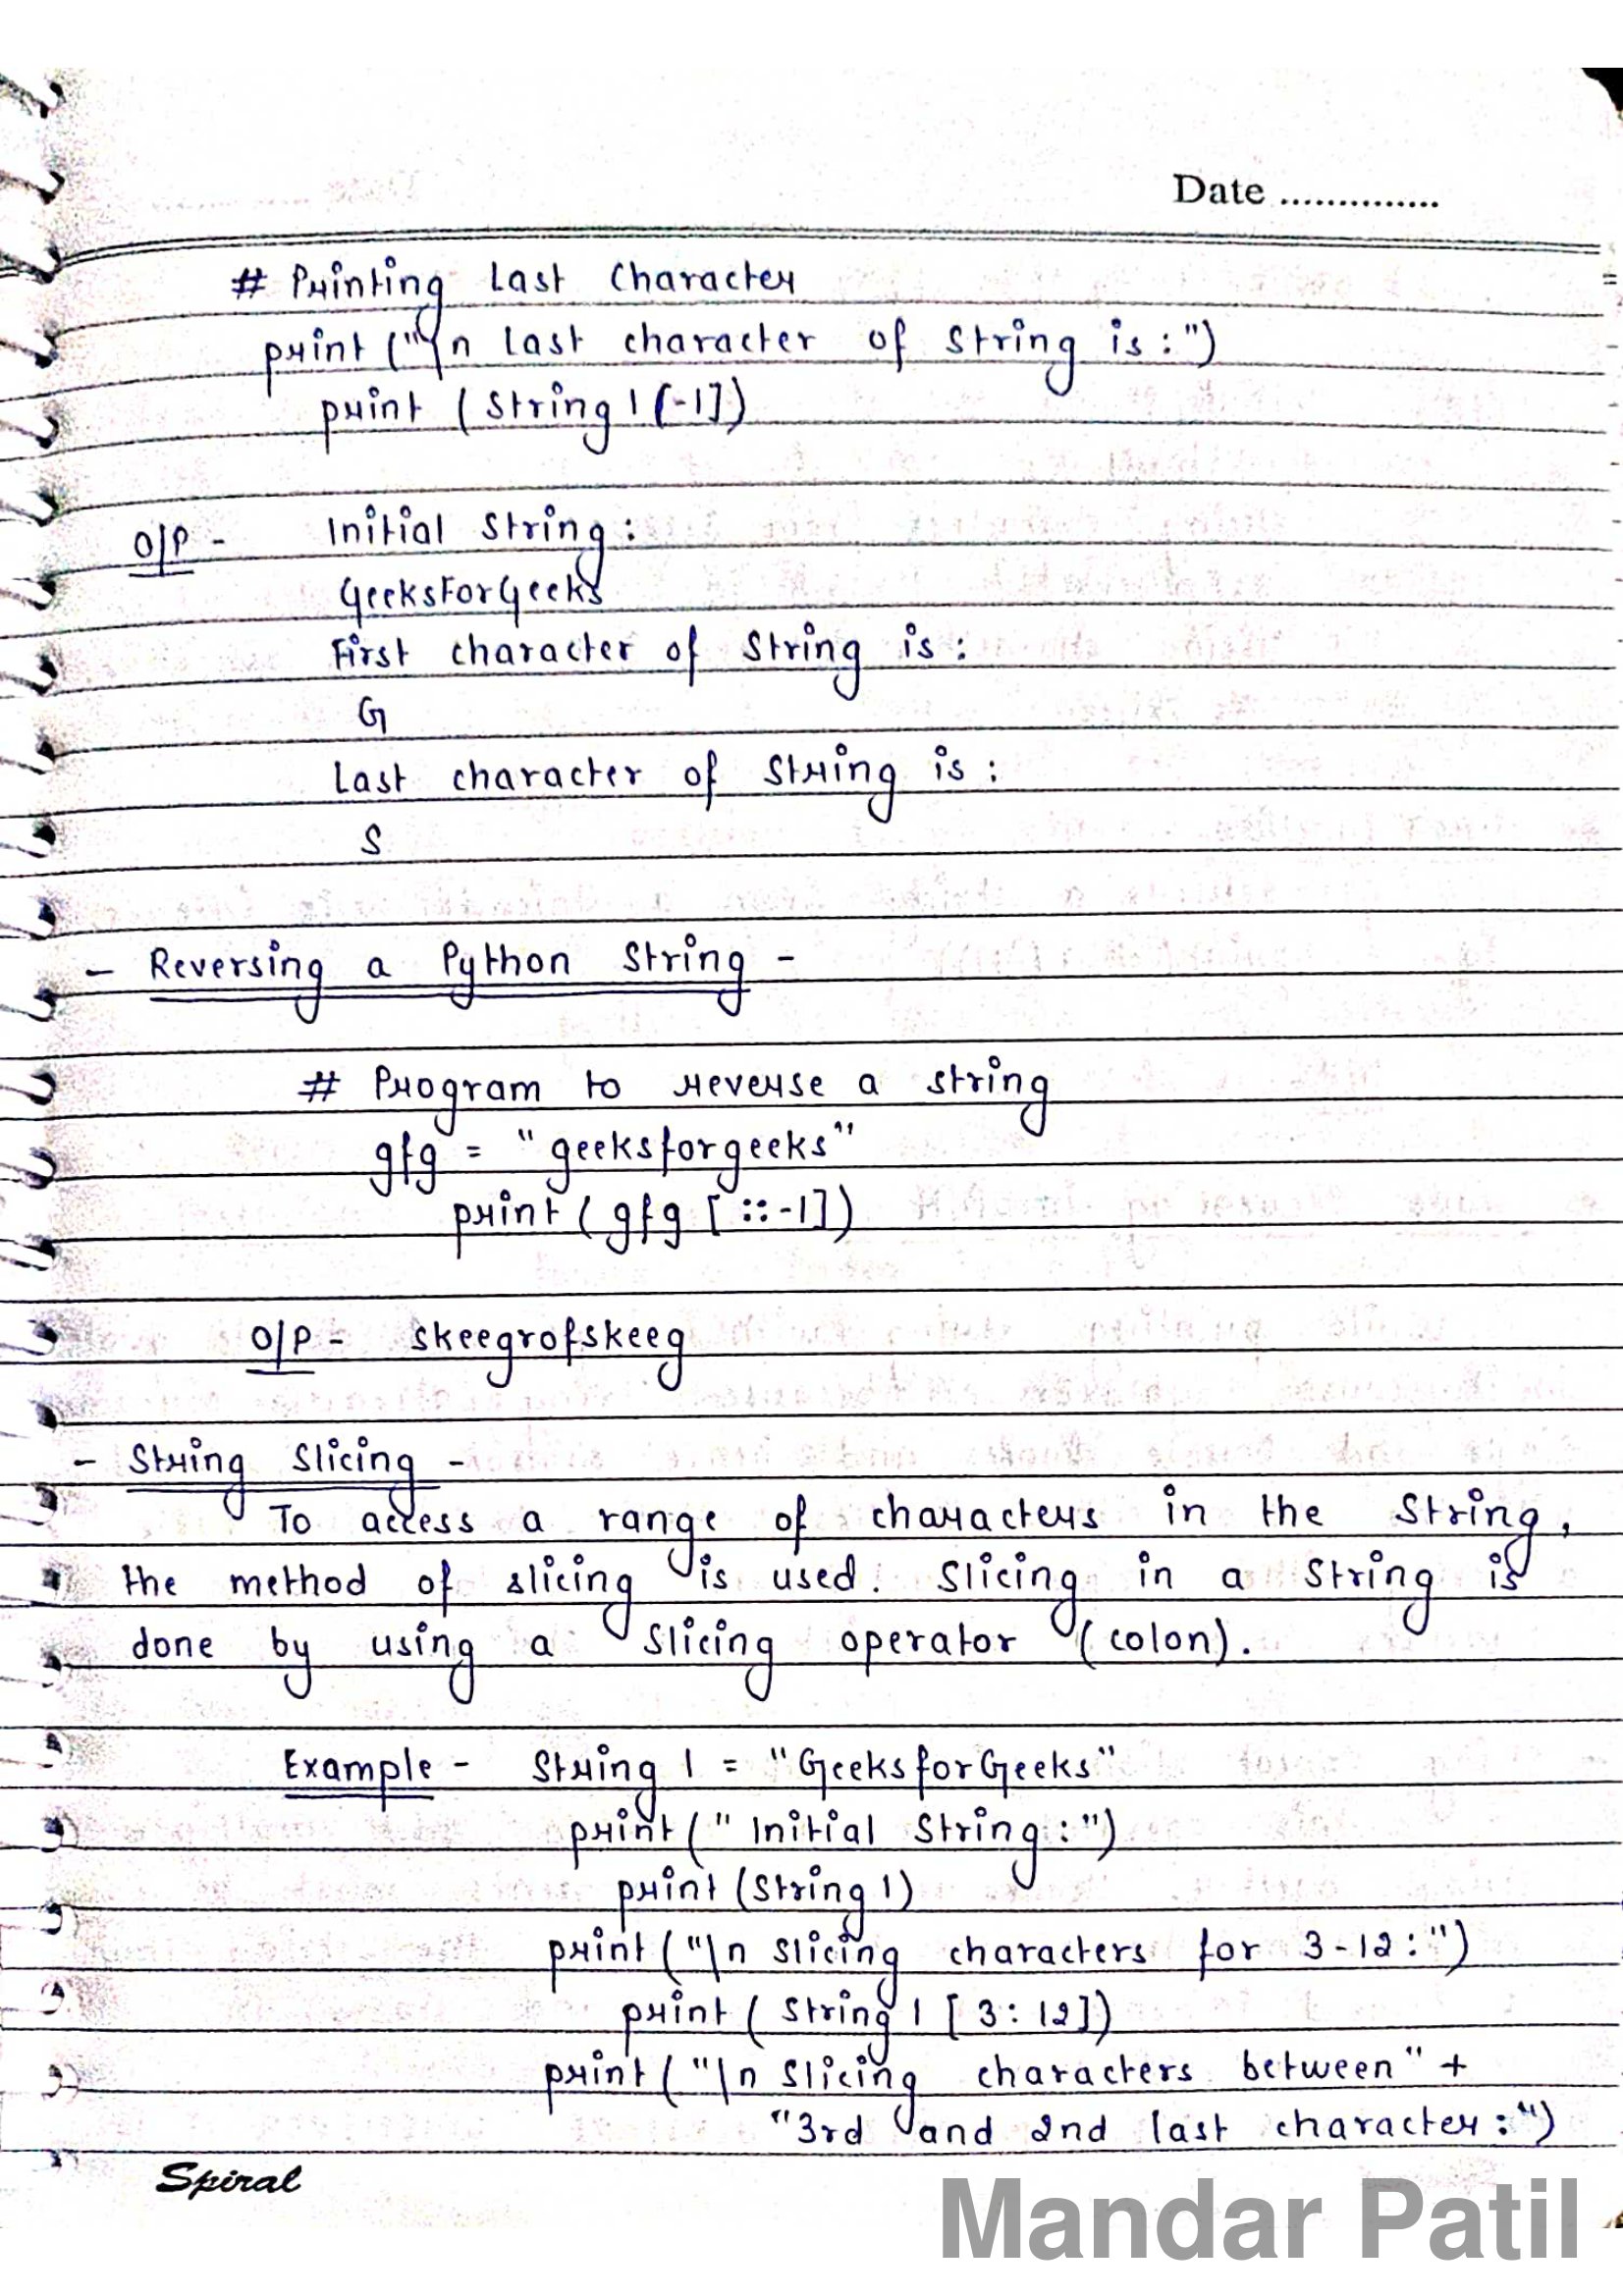 Date ..............
# Printing Last Character
print ("\n Last character of String is:")
print (String 1 [-1])
O/P - Initial String:
GeeksForGeeks
First character of String is:
G
Last character of String is:
S
- Reversing a Python String -
# Program to reverse a string
gfg = "geeksforgeeks"
print (gfg [::-1])
O/P - skeegrofskeeg
- String Slicing -
To access a range of characters in the String,
the method of slicing is used. Slicing in a String is
done by using a Slicing operator (colon).
Example - String 1 = "GeeksforGeeks"
print (" Initial String:")
print (String 1)
print ("\n Slicing characters for 3-12:")
print (String 1 [3:12])
print ("\n Slicing characters between" +
"3rd and 2nd last character:")
Spiral
Mandar Patil